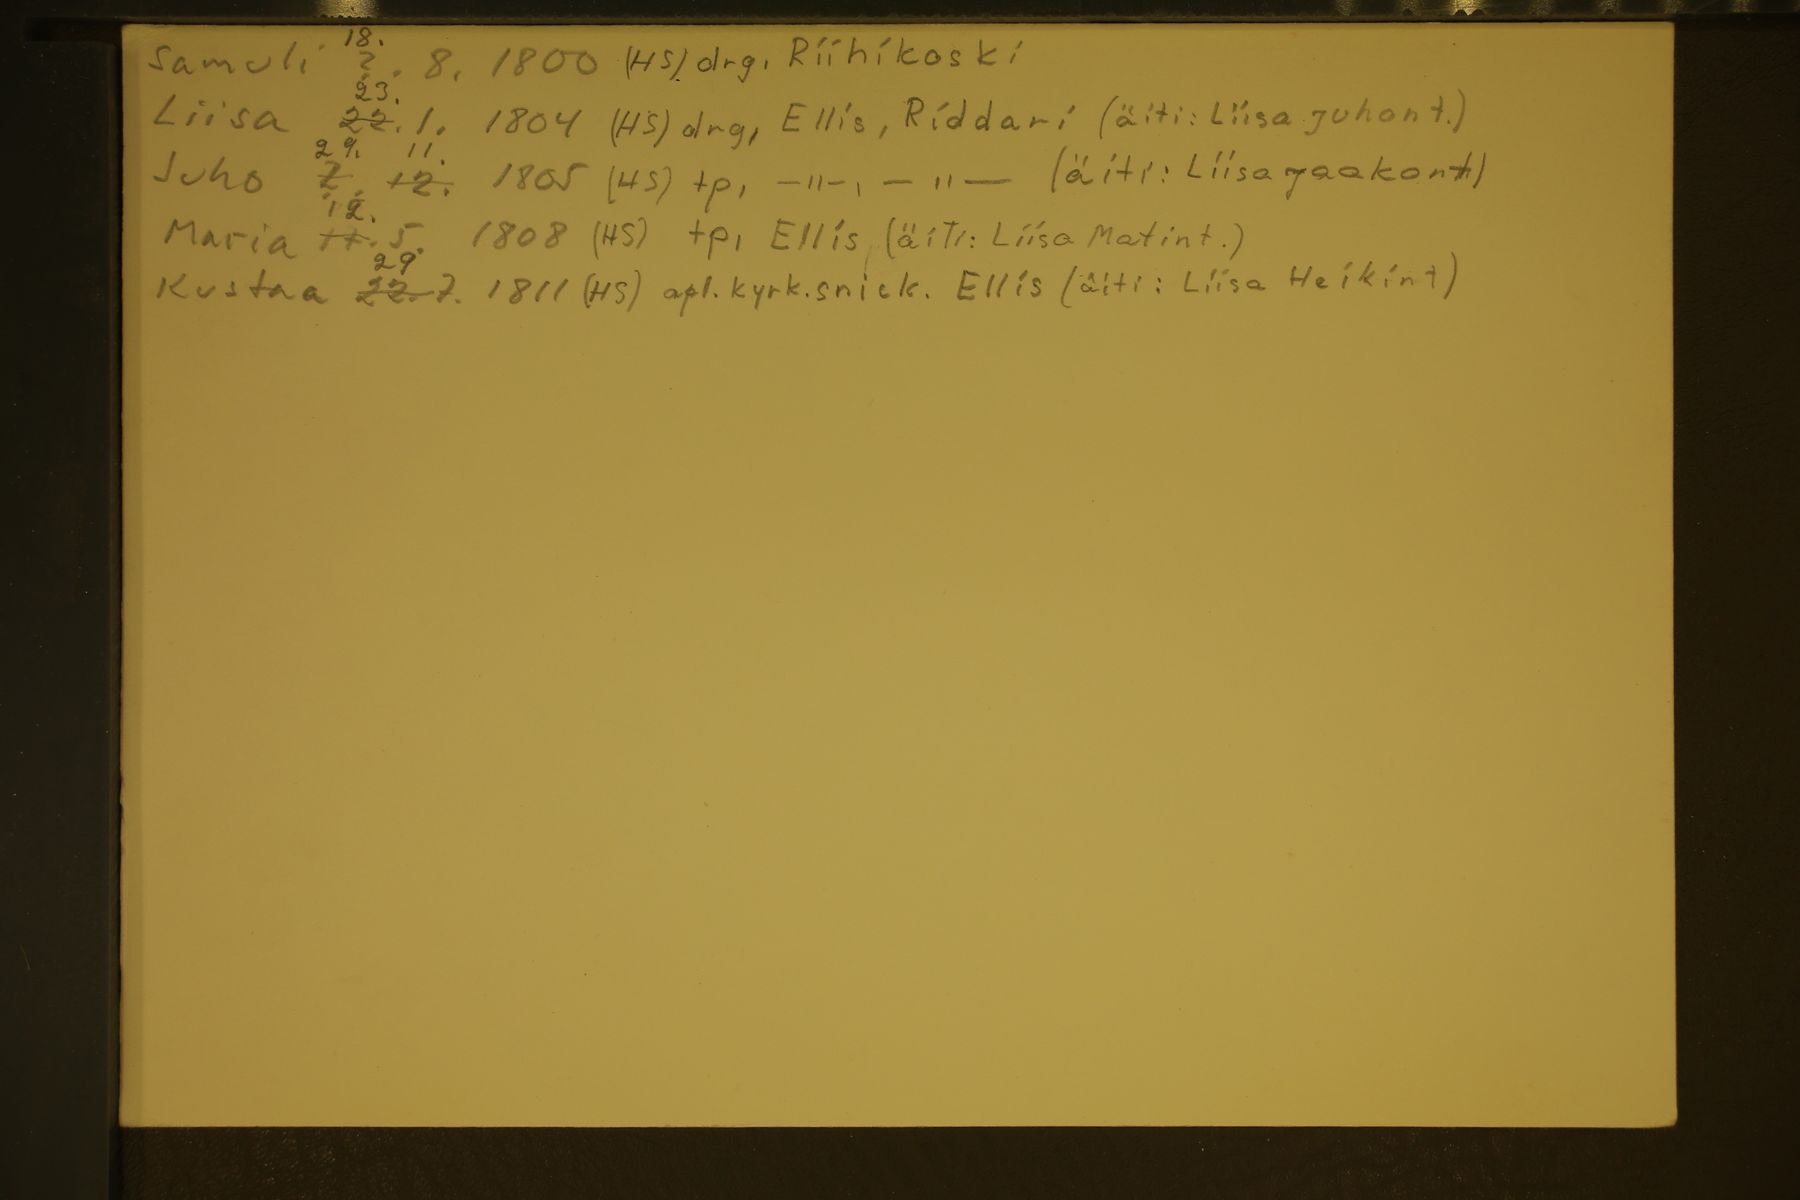 18.
Samuli ?. 8. 1800 (HS) drg, Riihikoski
23.
Liisa 22. 1. 1804 (HS) drg, Ellis, Riddari (äiti: Liisa Juhont.)
29. 11.
Juho ?. 12. 1805 (HS) tp, —"—, — " — (äiti: Liisa Jaakont)
12.
Maria 11. 5. 1808 (HS) tp, Ellis (äiti: Liisa Matint.)
29
Kustaa 22. 7. 1811 (HS) apl. kyrk.snick. Ellis (äiti: Liisa Heikint)